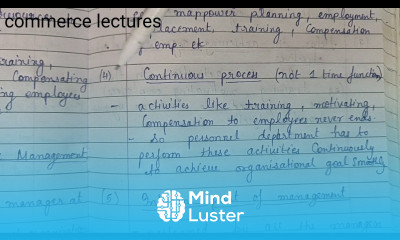 commerce lectures
manpower planning, employment,
placement, training, Compensation
emp. ek
raining,
Compensating
ng employees
(4) Continuous process (not 1 time function)
- activities like training, motivating,
Compensation to employees never ends
- So personnel department has to
perform these activities Continuously
to achieve organisational goal smoothly
Management
manager at
(5)
of management
Mind
Luster